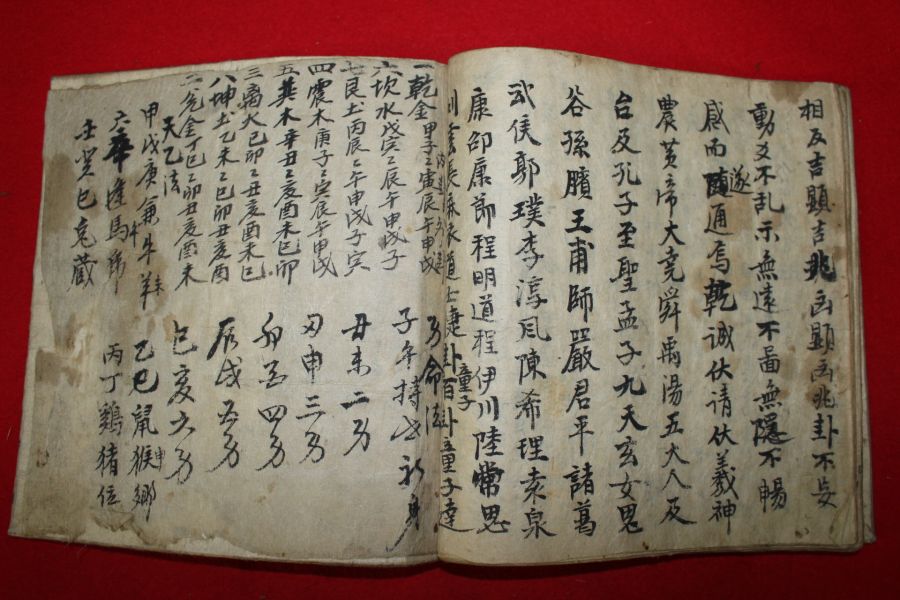 相反吉顯吉兆凶顯凶兆卦不妄
動爻不乱示無遠不啚無隱不暢
感而隨遂通焉乾誠伏請伏羲神
農黃帝大堯舜禹湯五大人及
台及孔子至聖孟子九天玄女鬼
谷孫臏王甫師嚴君平諸葛
武侯郭璞李淳風陳希理索泉
康邵康節程明道程伊川陸常思
長麻衣道士卦童子百卦童子
一乾金甲子二寅辰午申戌
六坎水戊寅二辰午申戌子
七艮土丙辰二午申戌子寅
四震木庚子二寅辰午申戌
五巽木辛丑二亥酉未巳卯
三離火己卯二丑亥酉未巳
八坤土乙未二巳卯丑亥酉
二兌金丁巳二卯丑亥酉未
身命法
子午持世初身
丑未二身
寅申三身
卯酉四身
辰戌五身
巳亥六身
天乙法
甲戊庚兼牛羊
乙己鼠猴鄉
丙丁鷄猪位
六辛逢馬虎
壬癸巳兔藏